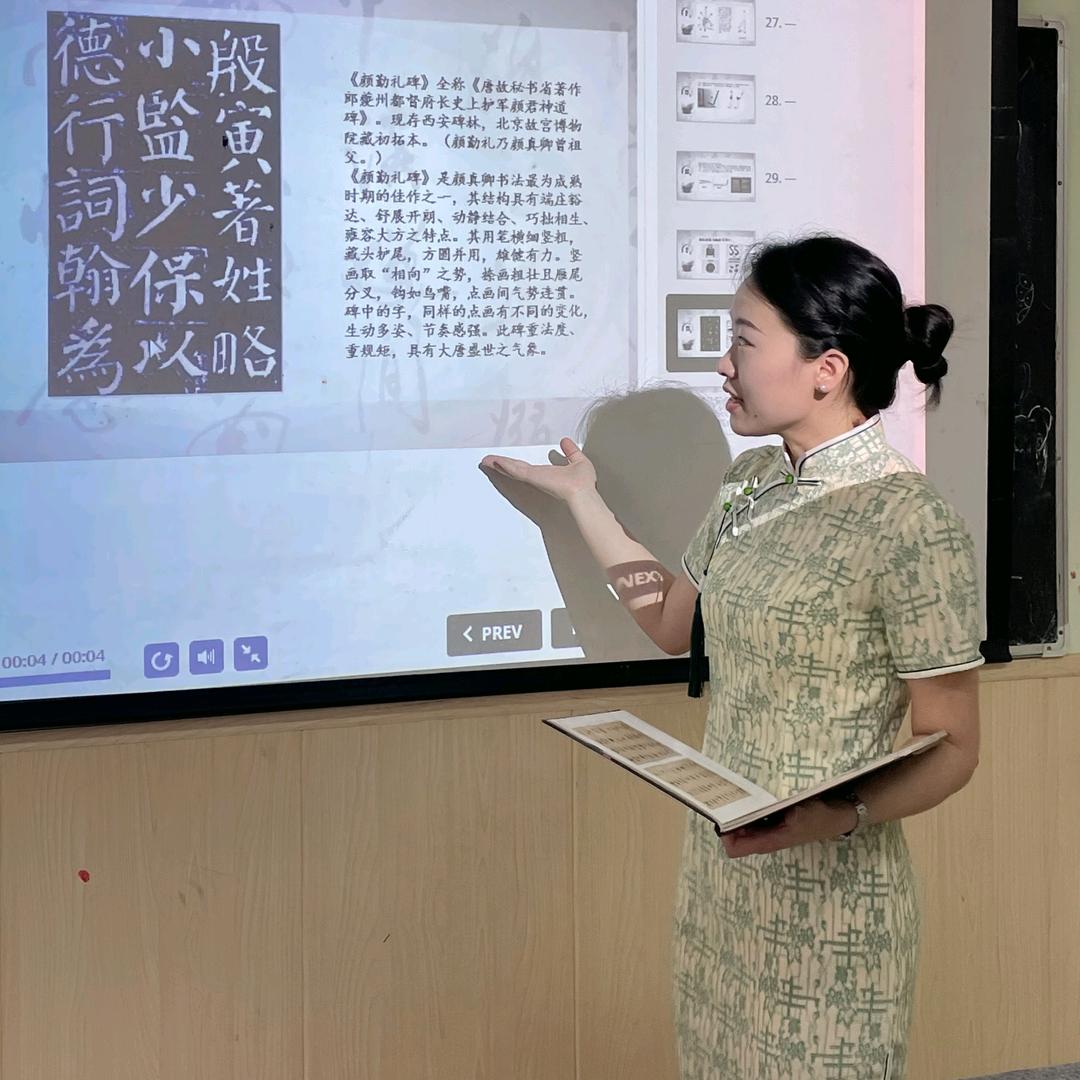 殷寅著姓略
小監少保以
德行詞翰為
《颜勤礼碑》全称《唐故秘书省著作
郎夔州都督府长史上护军颜君神道
碑》。现存西安碑林，北京故宫博物
院藏初拓本。（颜勤礼乃颜真卿曾祖
父。）
《颜勤礼碑》是颜真卿书法最为成熟
时期的佳作之一，其结构具有端庄豁
达、舒展开朗、动静结合、巧拙相生、
雍容大方之特点。其用笔横细竖粗，
藏头护尾，方圆并用，雄健有力。竖
画取“相向”之势，捺画粗壮且雁尾
分叉，钩如鸟嘴，点画间气势连贯。
碑中的字，同样的点画有不同的变化，
生动多姿、节奏感强。此碑重法度、
重规矩，具有大唐盛世之气象。
27. —
28. —
29. —
00:04 / 00:04
PREV
NEXT